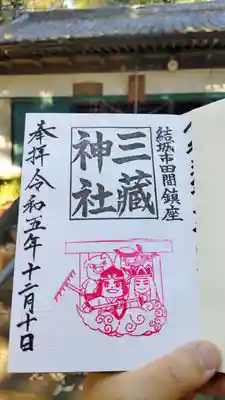 結城市田間鎮座
三蔵
神社
奉拝 令和五年十二月十日